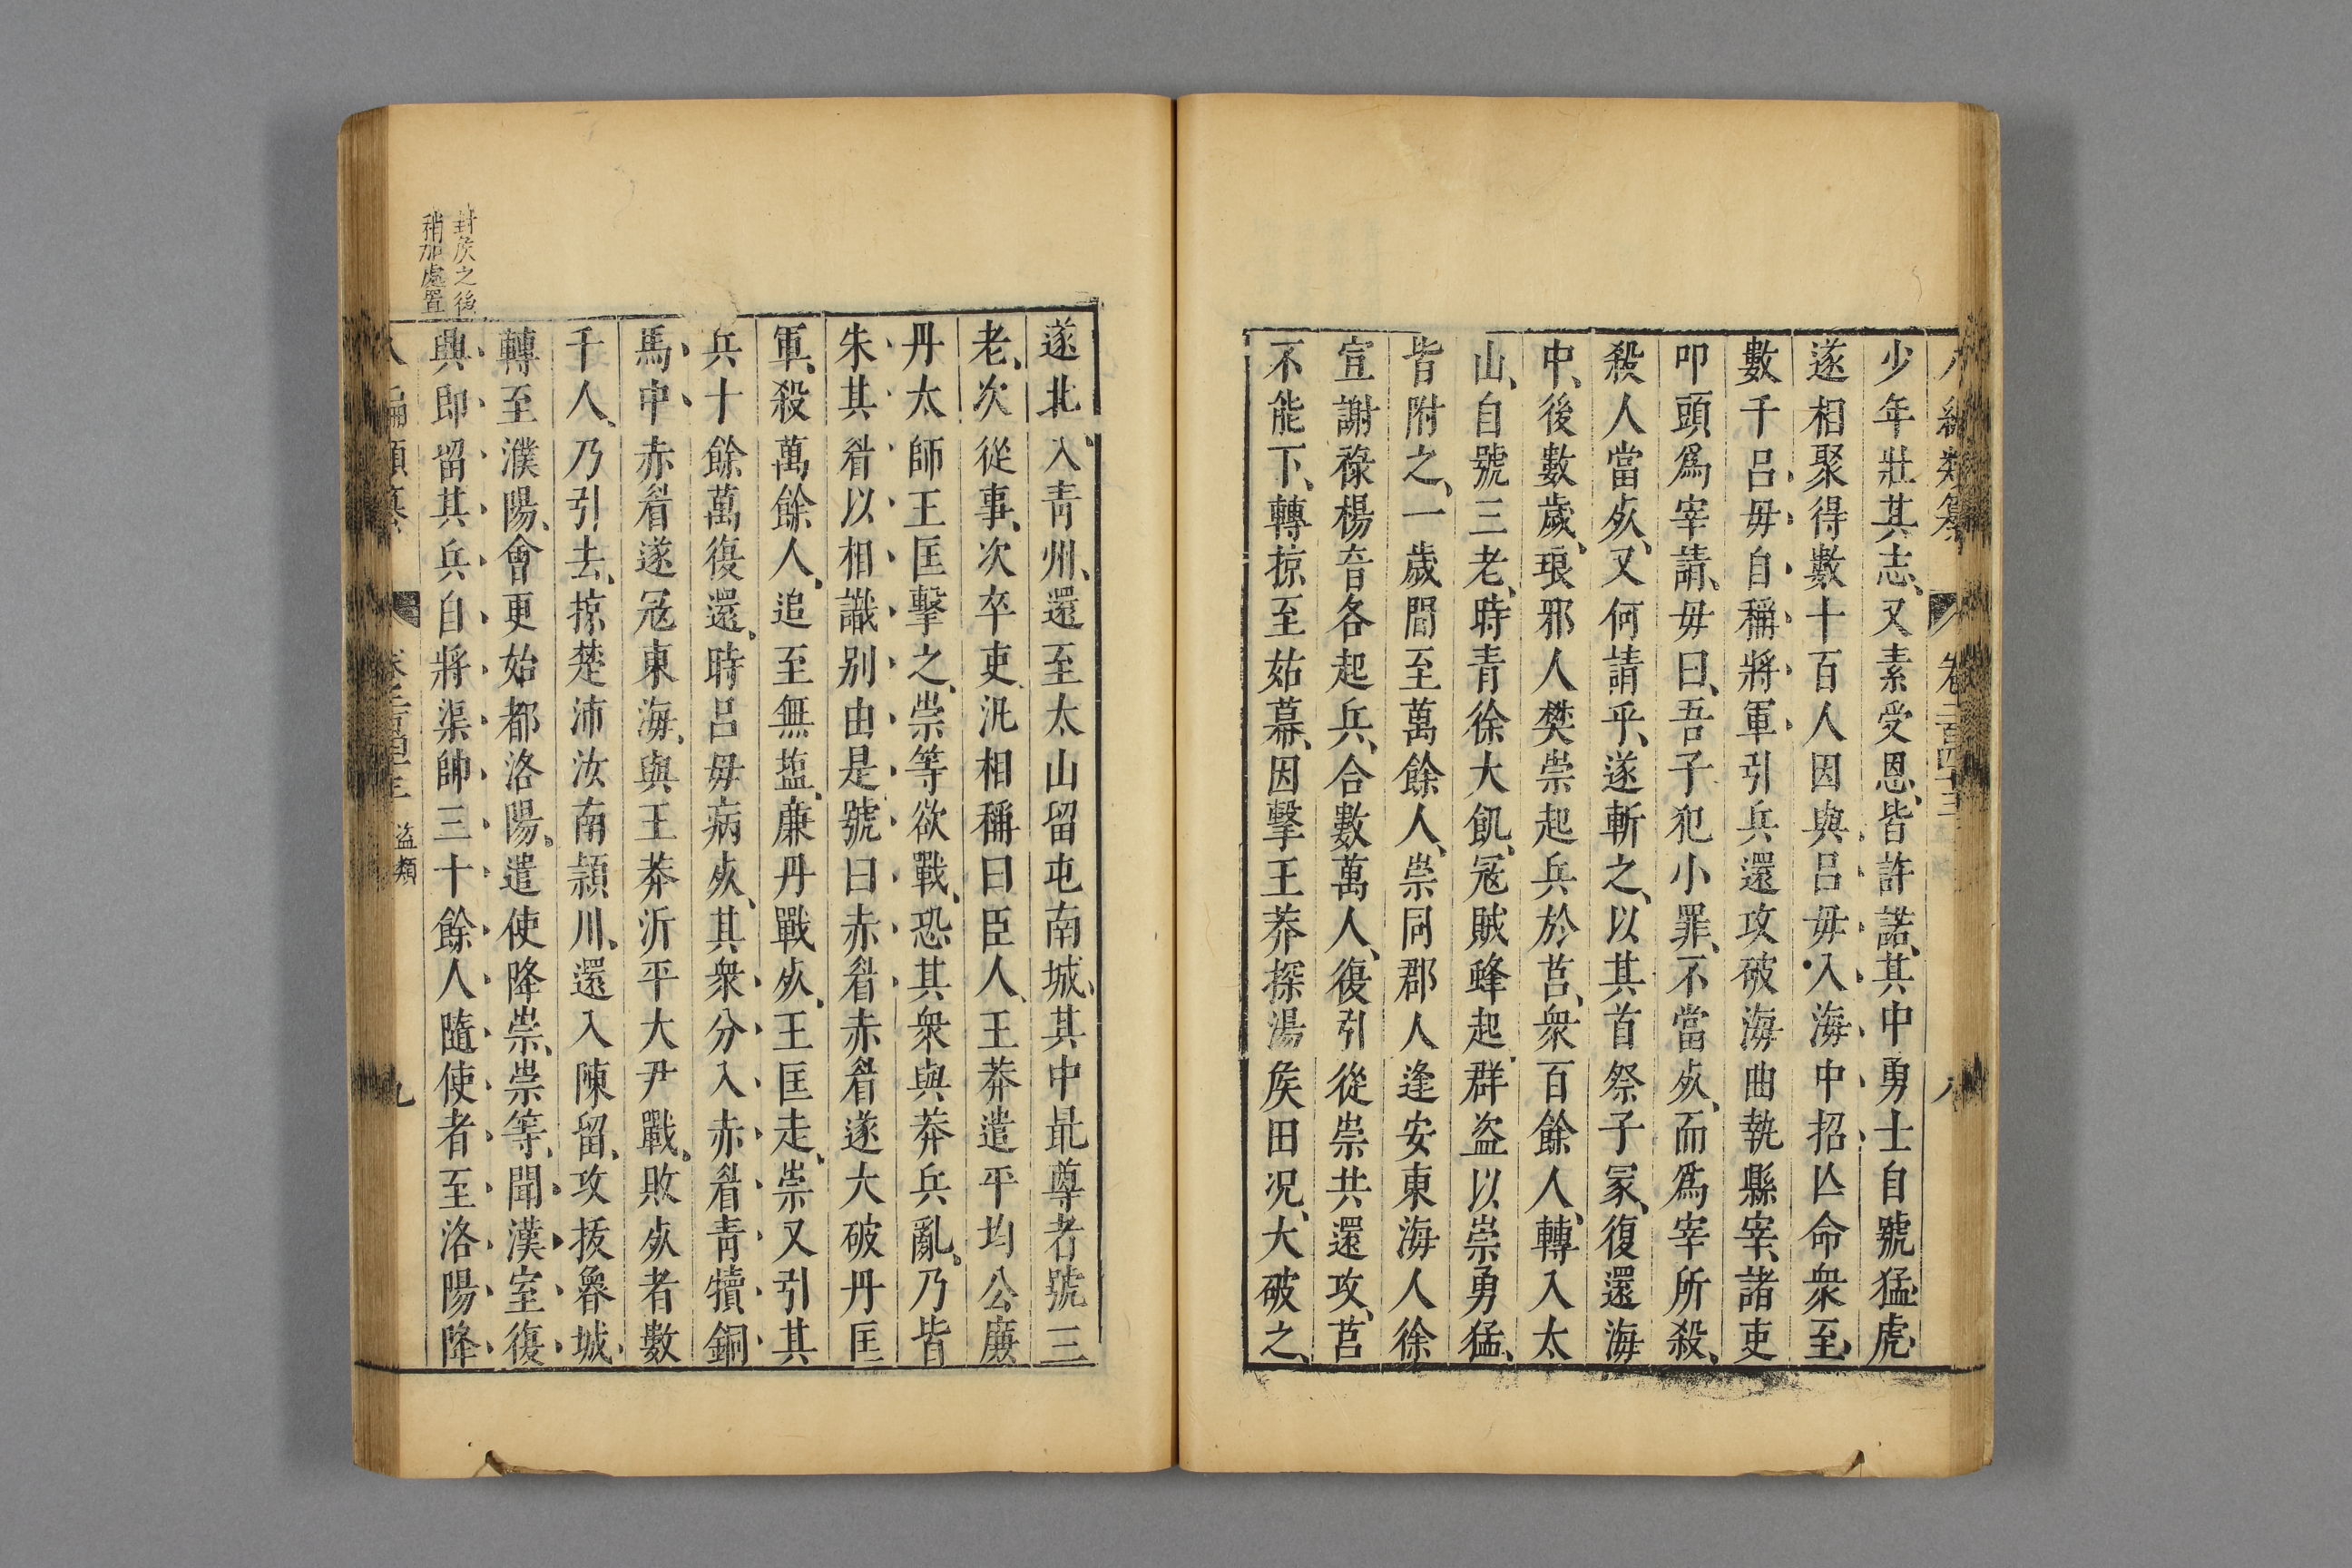 八編類纂 卷二百四十三 八
少年壯其志、又素受恩、皆許諾、其中勇士自號猛虎、
遂相聚得數十百人因與呂毋入海中招亾命衆至、
數千呂毋自稱將軍引兵還攻破海曲執縣宰、諸吏
叩頭爲宰請、毋曰、吾子犯小罪、不當㱙、而爲宰所殺、
殺人當㱙、又何請乎、遂斬之、以其首祭子冢、復還海
中、後數歲、琅邪人樊崇起兵於莒、衆百餘人、轉入太
山、自號三老、時青徐大飢、冦賊蜂起、群盜以崇勇猛、
皆附之、一歲間至萬餘人、崇同郡人逢安東海人徐
宣謝祿楊音各起兵、合數萬人、復引從崇共還攻、莒
不能下、轉掠至姑幕、因擊王莽探湯矦田况、大破之、
遂北、入青州、還至太山留屯南城、其中最尊者號三
老、次從事、次卒吏、汎相稱曰臣人、王莽遣平均公廉
丹太師王匡擊之、崇等欲戰、恐其衆與莽兵亂、乃皆
朱其眉以相識别由是號曰赤眉赤眉遂大破丹匡
軍、殺萬餘人、追至無塩、廉丹戰㱙、王匡走、崇又引其
兵十餘萬復還、時呂毋病㱙、其衆分入赤眉青犢銅
馬中赤眉遂冦東海、與王莽沂平大尹戰、敗㱙者數
千人、乃引去、掠楚沛汝南潁川、還入陳留、攻拔魯城、
轉至濮陽、會更始都洛陽、遣使降崇、崇等、聞漢室復
興即留其兵自將渠帥三十餘人隨使者至洛陽降
封矦之後
稍加處置
八編類纂 卷二百四十三 盜類 九